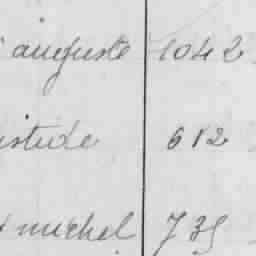 auguste 1042
istide 612
michel 735